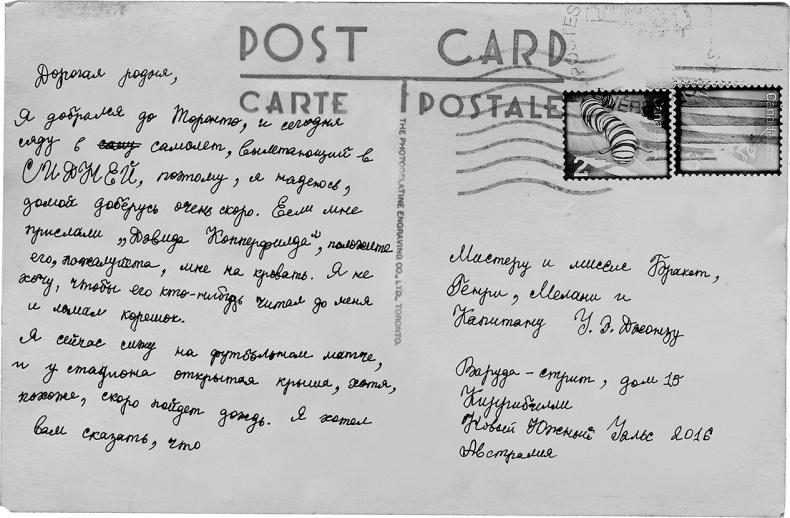 POST CARD
CARTE POSTALE
THE PHOTOGELATINE ENGRAVING CO., LTD., TORONTO.
Дорогая родня,
Я добрался до Торонто, и сегодня
сяду в самолет, вылетающий в
СИДНЕЙ, поэтому, я надеюсь,
домой доберусь очень скоро. Если мне
прислали „Дэвида Копперфилда“, положите
его, пожалуйста, мне на кровать. Я не
хочу, чтобы его кто-нибудь читал до меня
и ломал корешок.
Я сейчас сижу на футбольном матче,
и у стадиона открытая крыша, хотя,
похоже, скоро пойдет дождь. Я хотел
вам сказать, что
Мистеру и миссис Бракет,
Генри, Мелани и
Капитану У. Э. Джонзу
Варуда-стрит, дом 15
Киррибилли
Новый Южный Уэльс 2016
Австралия
2